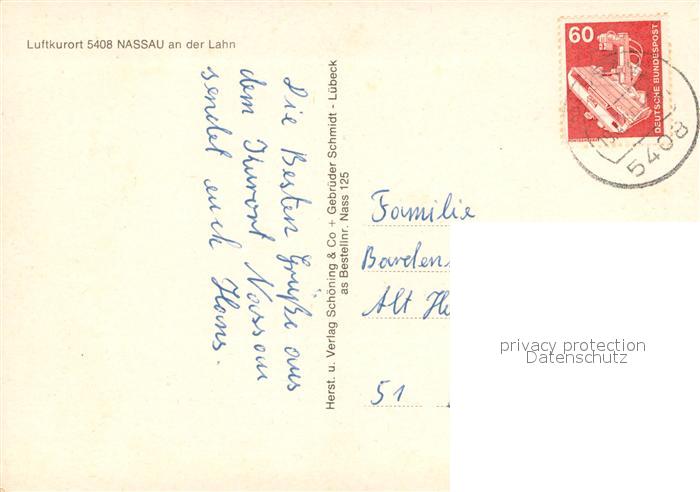 Luftkurort 5408 NASSAU an der Lahn
Die Besten Grüße aus
dem Kurort Nassau
sendet euch Hans.
Herst. u. Verlag Schöning & Co + Gebrüder Schmidt - Lübeck
as Bestellnr. Nass 125
60
DEUTSCHE BUNDESPOST
5408
Familie
Bardens
Alt He
51
privacy protection
Datenschutz